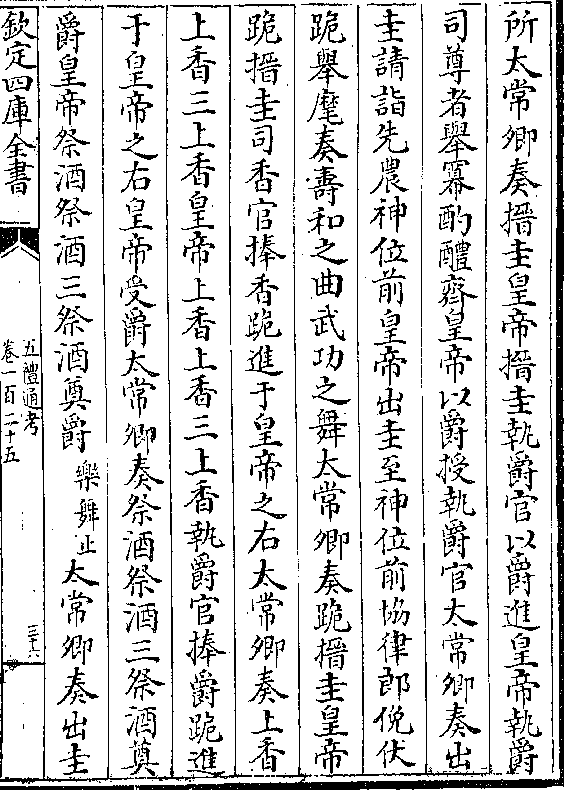 所太常卿奏搢圭皇帝搢圭執爵官以爵進皇帝執爵
司尊者舉冪酌醴齊皇帝以爵授執爵官太常卿奏出
圭請詣先農神位前皇帝出圭至神位前協律郎俛伏
跪舉麾奏壽和之曲武功之舞太常卿奏跪搢圭皇帝
跪搢圭司香官捧香跪進于皇帝之右太常卿奏上香
上香三上香皇帝上香上香三上香執爵官捧爵跪進
于皇帝之右皇帝受爵太常卿奏祭酒祭酒三祭酒奠
爵皇帝祭酒祭酒三祭酒奠爵樂舞止太常卿奏出圭
欽定四庫全書
五禮通考
卷一百二十五
三十六